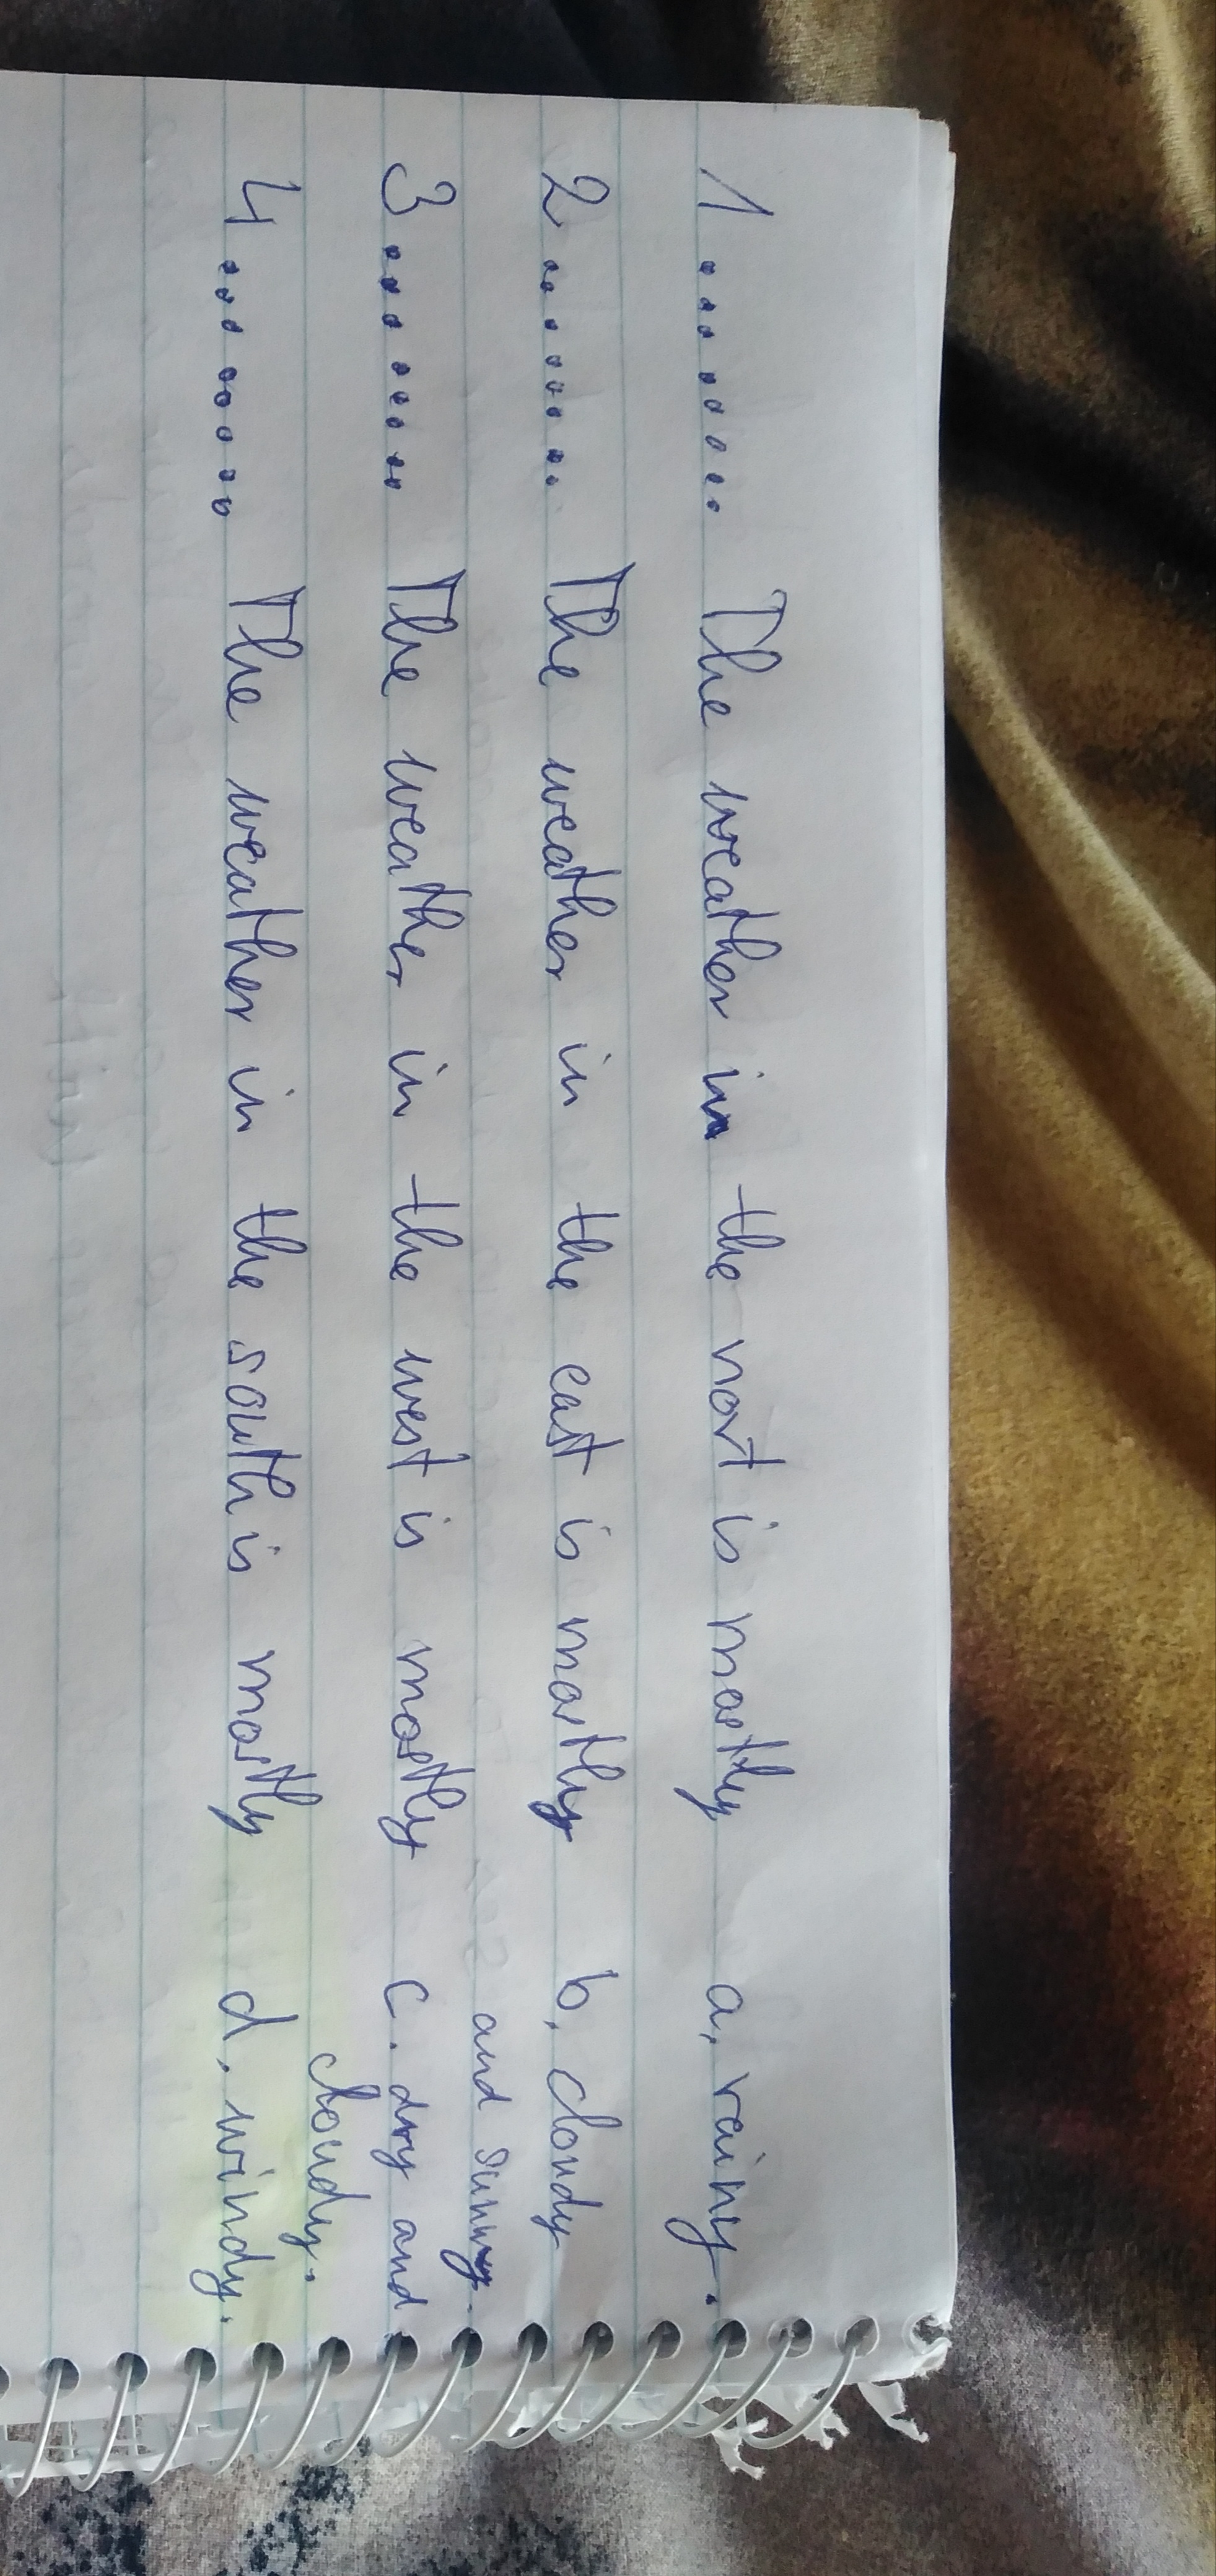 1 ......... The weather in the nort is mostly a, rainy.
2 .......... The weather in the east is mostly b, cloudy
and sunny.
3 .......... The weather in the west is mostly c. dry and
cloudy.
4 .......... The weather in the south is mostly d. windy.